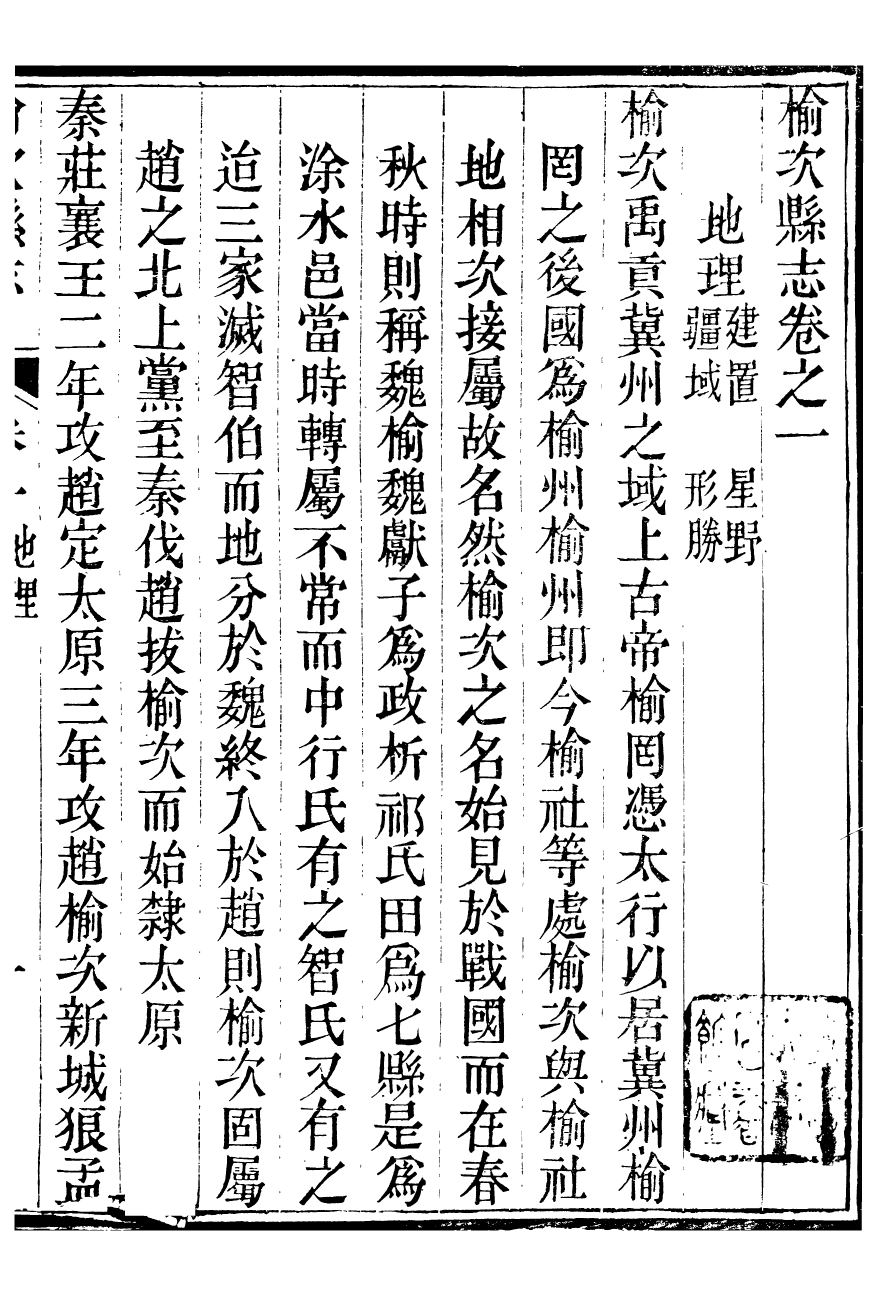 榆次縣志卷之一
地理建置 星野
疆域 形勝
榆次禹貢冀州之域上古帝榆罔憑太行以居冀州榆
罔之後國爲榆州榆州即今榆社等處榆次與榆社
地相次接屬故名然榆次之名始見於戰國而在春
秋時則稱魏榆魏獻子爲政析祁氏田爲七縣是爲
涂水邑當時轉屬不常而中行氏有之智氏又有之
迨三家滅智伯而地分於魏終入於趙則榆次固屬
趙之北上黨至秦伐趙拔榆次而始隸太原
秦莊襄王二年攻趙定太原三年攻趙榆次新城狼孟
地理